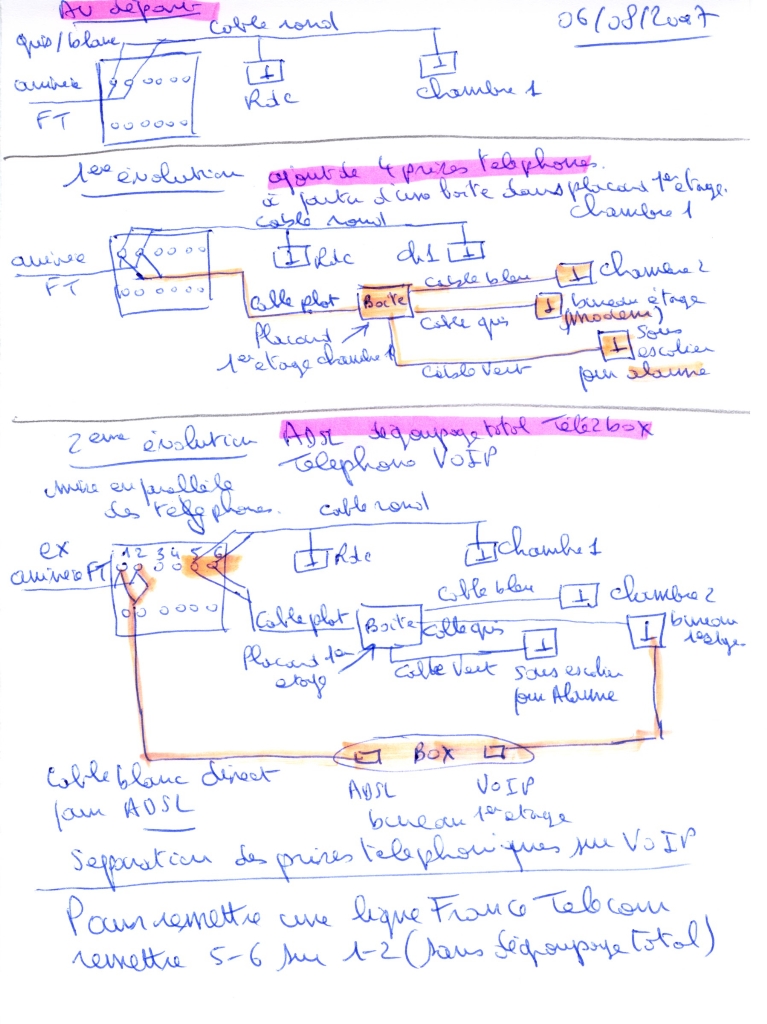 Au départ
06/08/2007
cable rond
gris/blanc
arrivée
FT
Rdc
chambre 1
1ere évolution ajout de 4 prises telephones.
à partir d'une boite dans placard 1er étage.
chambre 1
cable rond
arrivée
FT
Rdc
ch1
cable bleu
chambre 2
Cable plat
Boite
cable gris
bureau étage
(modem)
Placard
1er étage chambre 1
cable vert
sous
escalier
pour alarme
2eme évolution ADSL dégroupage total Télé2box
Telephone VoIP
mise en parallèle
des telephones.
cable rond
ex
arrivée FT
1 2 3 4 5 6
Rdc
chambre 1
cable bleu
chambre 2
Cable plat
Boite
cable gris
bureau
1er étage
Placard 1er
etage
cable vert
sous escalier
pour Alarme
BOX
Cable blanc direct
pour ADSL
ADSL
VoIP
bureau 1er etage
Separation des prises telephoniques sur VoIP
Pour remettre une ligne France Telecom
remettre 5-6 sur 1-2 (sans dégroupage total)